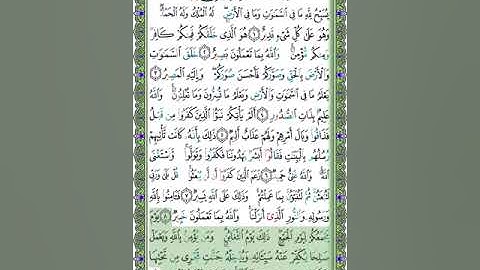 يُسَبِّحُ لِلَّهِ مَا فِي السَّمَاوَاتِ وَمَا فِي الْأَرْضِ لَهُ الْمُلْكُ وَلَهُ الْحَمْدُ
وَهُوَ عَلَىٰ كُلِّ شَيْءٍ قَدِيرٌ ﴿١﴾ هُوَ الَّذِي خَلَقَكُمْ فَمِنكُمْ كَافِرٌ
وَمِنكُم مُّؤْمِنٌ وَاللَّهُ بِمَا تَعْمَلُونَ بَصِيرٌ ﴿٢﴾ خَلَقَ السَّمَاوَاتِ
وَالْأَرْضَ بِالْحَقِّ وَصَوَّرَكُمْ فَأَحْسَنَ صُوَرَكُمْ وَإِلَيْهِ الْمَصِيرُ ﴿٣﴾
يَعْلَمُ مَا فِي السَّمَاوَاتِ وَالْأَرْضِ وَيَعْلَمُ مَا تُسِرُّونَ وَمَا تُعْلِنُونَ وَاللَّهُ
عَلِيمٌ بِذَاتِ الصُّدُورِ ﴿٤﴾ أَلَمْ يَأْتِكُمْ نَبَأُ الَّذِينَ كَفَرُوا مِن قَبْلُ
فَذَاقُوا وَبَالَ أَمْرِهِمْ وَلَهُمْ عَذَابٌ أَلِيمٌ ﴿٥﴾ ذَٰلِكَ بِأَنَّهُ كَانَت تَّأْتِيهِمْ
رُسُلُهُم بِالْبَيِّنَاتِ فَقَالُوا أَبَشَرٌ يَهْدُونَنَا فَكَفَرُوا وَتَوَلَّوا وَّاسْتَغْنَى
اللَّهُ وَاللَّهُ غَنِيٌّ حَمِيدٌ ﴿٦﴾ زَعَمَ الَّذِينَ كَفَرُوا أَن لَّن يُبْعَثُوا قُلْ بَلَىٰ وَرَبِّي
لَتُبْعَثُنَّ ثُمَّ لَتُنَبَّؤُنَّ بِمَا عَمِلْتُمْ وَذَٰلِكَ عَلَى اللَّهِ يَسِيرٌ ﴿٧﴾ فَآمِنُوا بِاللَّهِ
وَرَسُولِهِ وَالنُّورِ الَّذِي أَنزَلْنَا وَاللَّهُ بِمَا تَعْمَلُونَ خَبِيرٌ ﴿٨﴾ يَوْمَ
يَجْمَعُكُمْ لِيَوْمِ الْجَمْعِ ذَٰلِكَ يَوْمُ التَّغَابُنِ وَمَن يُؤْمِن بِاللَّهِ وَيَعْمَلْ
صَالِحًا يُكَفِّرْ عَنْهُ سَيِّئَاتِهِ وَيُدْخِلْهُ جَنَّاتٍ تَجْرِي مِن تَحْتِهَا